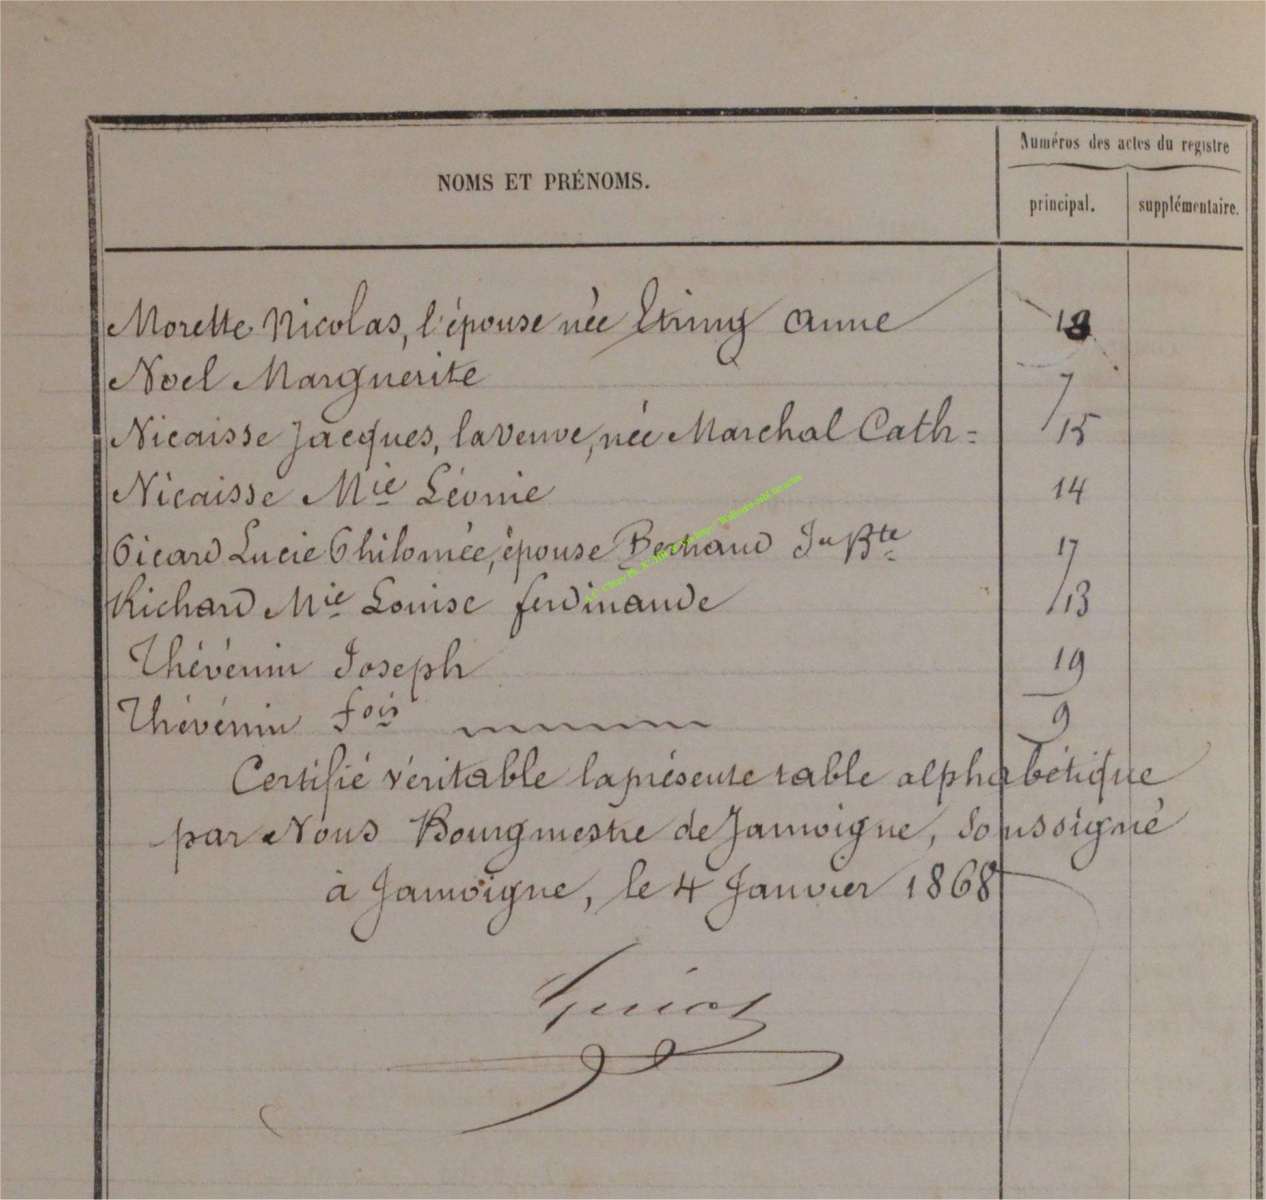 Numéros des actes du registre
NOMS ET PRÉNOMS.
principal. supplémentaire.
Morette Nicolas, l'épouse née Anne
Noel Marguerite 7
Nicaisse Jacques, la veuve, née Marchal Cath= 15
Nicaisse Mie Léonie 14
Picard Lucie Philomée, épouse Bertrand Jn Bte 17
Richard Mie Louise ferdinande 13
Thévénin Joseph 19
Thévénin fois 9
Certifié véritable la présente table alphabétique
par Nous Bourgmestre de Jamoigne, soussigné
à Jamoigne, le 4 Janvier 1868